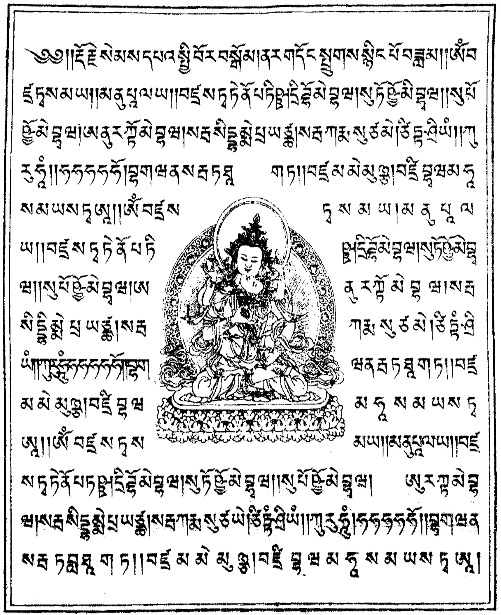 ༄༅།།རྡོ་རྗེ་སེམས་དཔའ་སྤྱི་བོར་བསྒོམ།ནར་གདོང་སྤྲུགས་སྙིང་པོ་བཟླས།།ཨོཾ་བ
ཛྲ་ཏྭ་ས་མ་ཡ།།མ་ནུ་པཱ་ལ་ཡ།།བཛྲ་ས་ཏྭ་ཏེ་ནོ་པ་ཏིཥྛ་དྲྀ་ཌྷོ་མེ་བྷ་ཝ།སུ་ཏོ་ཥྱོ་མེ་བྷ་ཝ།།སུ་པོ
ཥྱོ་མེ་བྷ་ཝ།ཨ་ནུ་ར་ཀྟོ་མེ་བྷ་ཝ།སརྦ་སིདྡྷི་མྨེ་པྲ་ཡཙྪ།སརྦ་ཀརྨ་སུ་ཙ་མེ།ཙིཏྟཾ་ཤྲི་ཡཾ།།ཀུ
རུ་ཧཱུྃ།།ཧ་ཧ་ཧ་ཧ་ཧོ།བྷ་ག་ཝན་སརྦ་ཏ་ཐཱ ག་ཏ།།བཛྲ་མ་མེ་མུཉྩ།བཛྲི་བྷ་ཝ་མ་ཧཱ
ས་མ་ཡ་ས་ཏྭ་ཨཱ།།ཨོཾ་བཛྲ་ས ཏྭ་ས་མ་ཡ།མ་ནུ་པཱ་ལ
ཡ།།བཛྲ་ས་ཏྭ་ཏེ་ནོ་པ་ཏི ཥྛ་དྲྀ་ཌྷོ་མེ་བྷ་ཝ།སུ་ཏོ་ཥྱོ་མེ་བྷ
ཝ།།སུ་པོ་ཥྱོ་མེ་བྷ་ཝ།ཨ ནུ་ར་ཀྟོ་མེ་བྷ་ཝ།སརྦ
སིདྡྷི་མྨེ་པྲ་ཡཙྪ།སརྦ ཀརྨ་སུ་ཙ་མེ།ཙིཏྟཾ་ཤྲི
ཡཾ།ཀུ་རུ་ཧཱུྃ།ཧ་ཧ་ཧ་ཧ་ཧོ།བྷ་ག ཝན་སརྦ་ཏ་ཐཱ་ག་ཏ།།བཛྲ
མ་མེ་མུཉྩ།བཛྲི་བྷ་ཝ མ་ཧཱ་ས་མ་ཡ་ས་ཏྭ
ཨཱ།།ཨོཾ་བཛྲ་ས་ཏྭ་ས མ་ཡ།།མ་ནུ་པཱ་ལ་ཡ།།བཛྲ
ས་ཏྭ་ཏེ་ནོ་པ་ཏ་ཥྛ་དྲྀ་ཌྷོ་མེ་བྷ་ཝ།སུ་ཏོ་ཥྱོ་མེ་བྷ་ཝ།།སུ་པོ་ཥྱོ་མེ་བྷ་ཝ། ཨུ་ར་ཀྟ་མེ་བྷ
ཝ།སརྦ་སིདྡྷི་མྨེ་པྲ་ཡཙྪ།སརྦ་ཀརྨ་སུ་ཙ་ཡེ་ཙིཏྟཾ་ཤྲི་ཡཾ།།ཀུ་རུ་ཧཱུྃ།ཧ་ཧ་ཧ་ཧ་ཧོ།།བྷ་ག་ཝན
སརྦ་ཏ་ཐཱ་ག་ཏ།།བཛྲ་མ་མེ་མུཉྩ།བཛྲི་བྷ་ཝ་མ་ཧཱ་ས་མ་ཡ་ས་ཏྭ་ཨཱ།